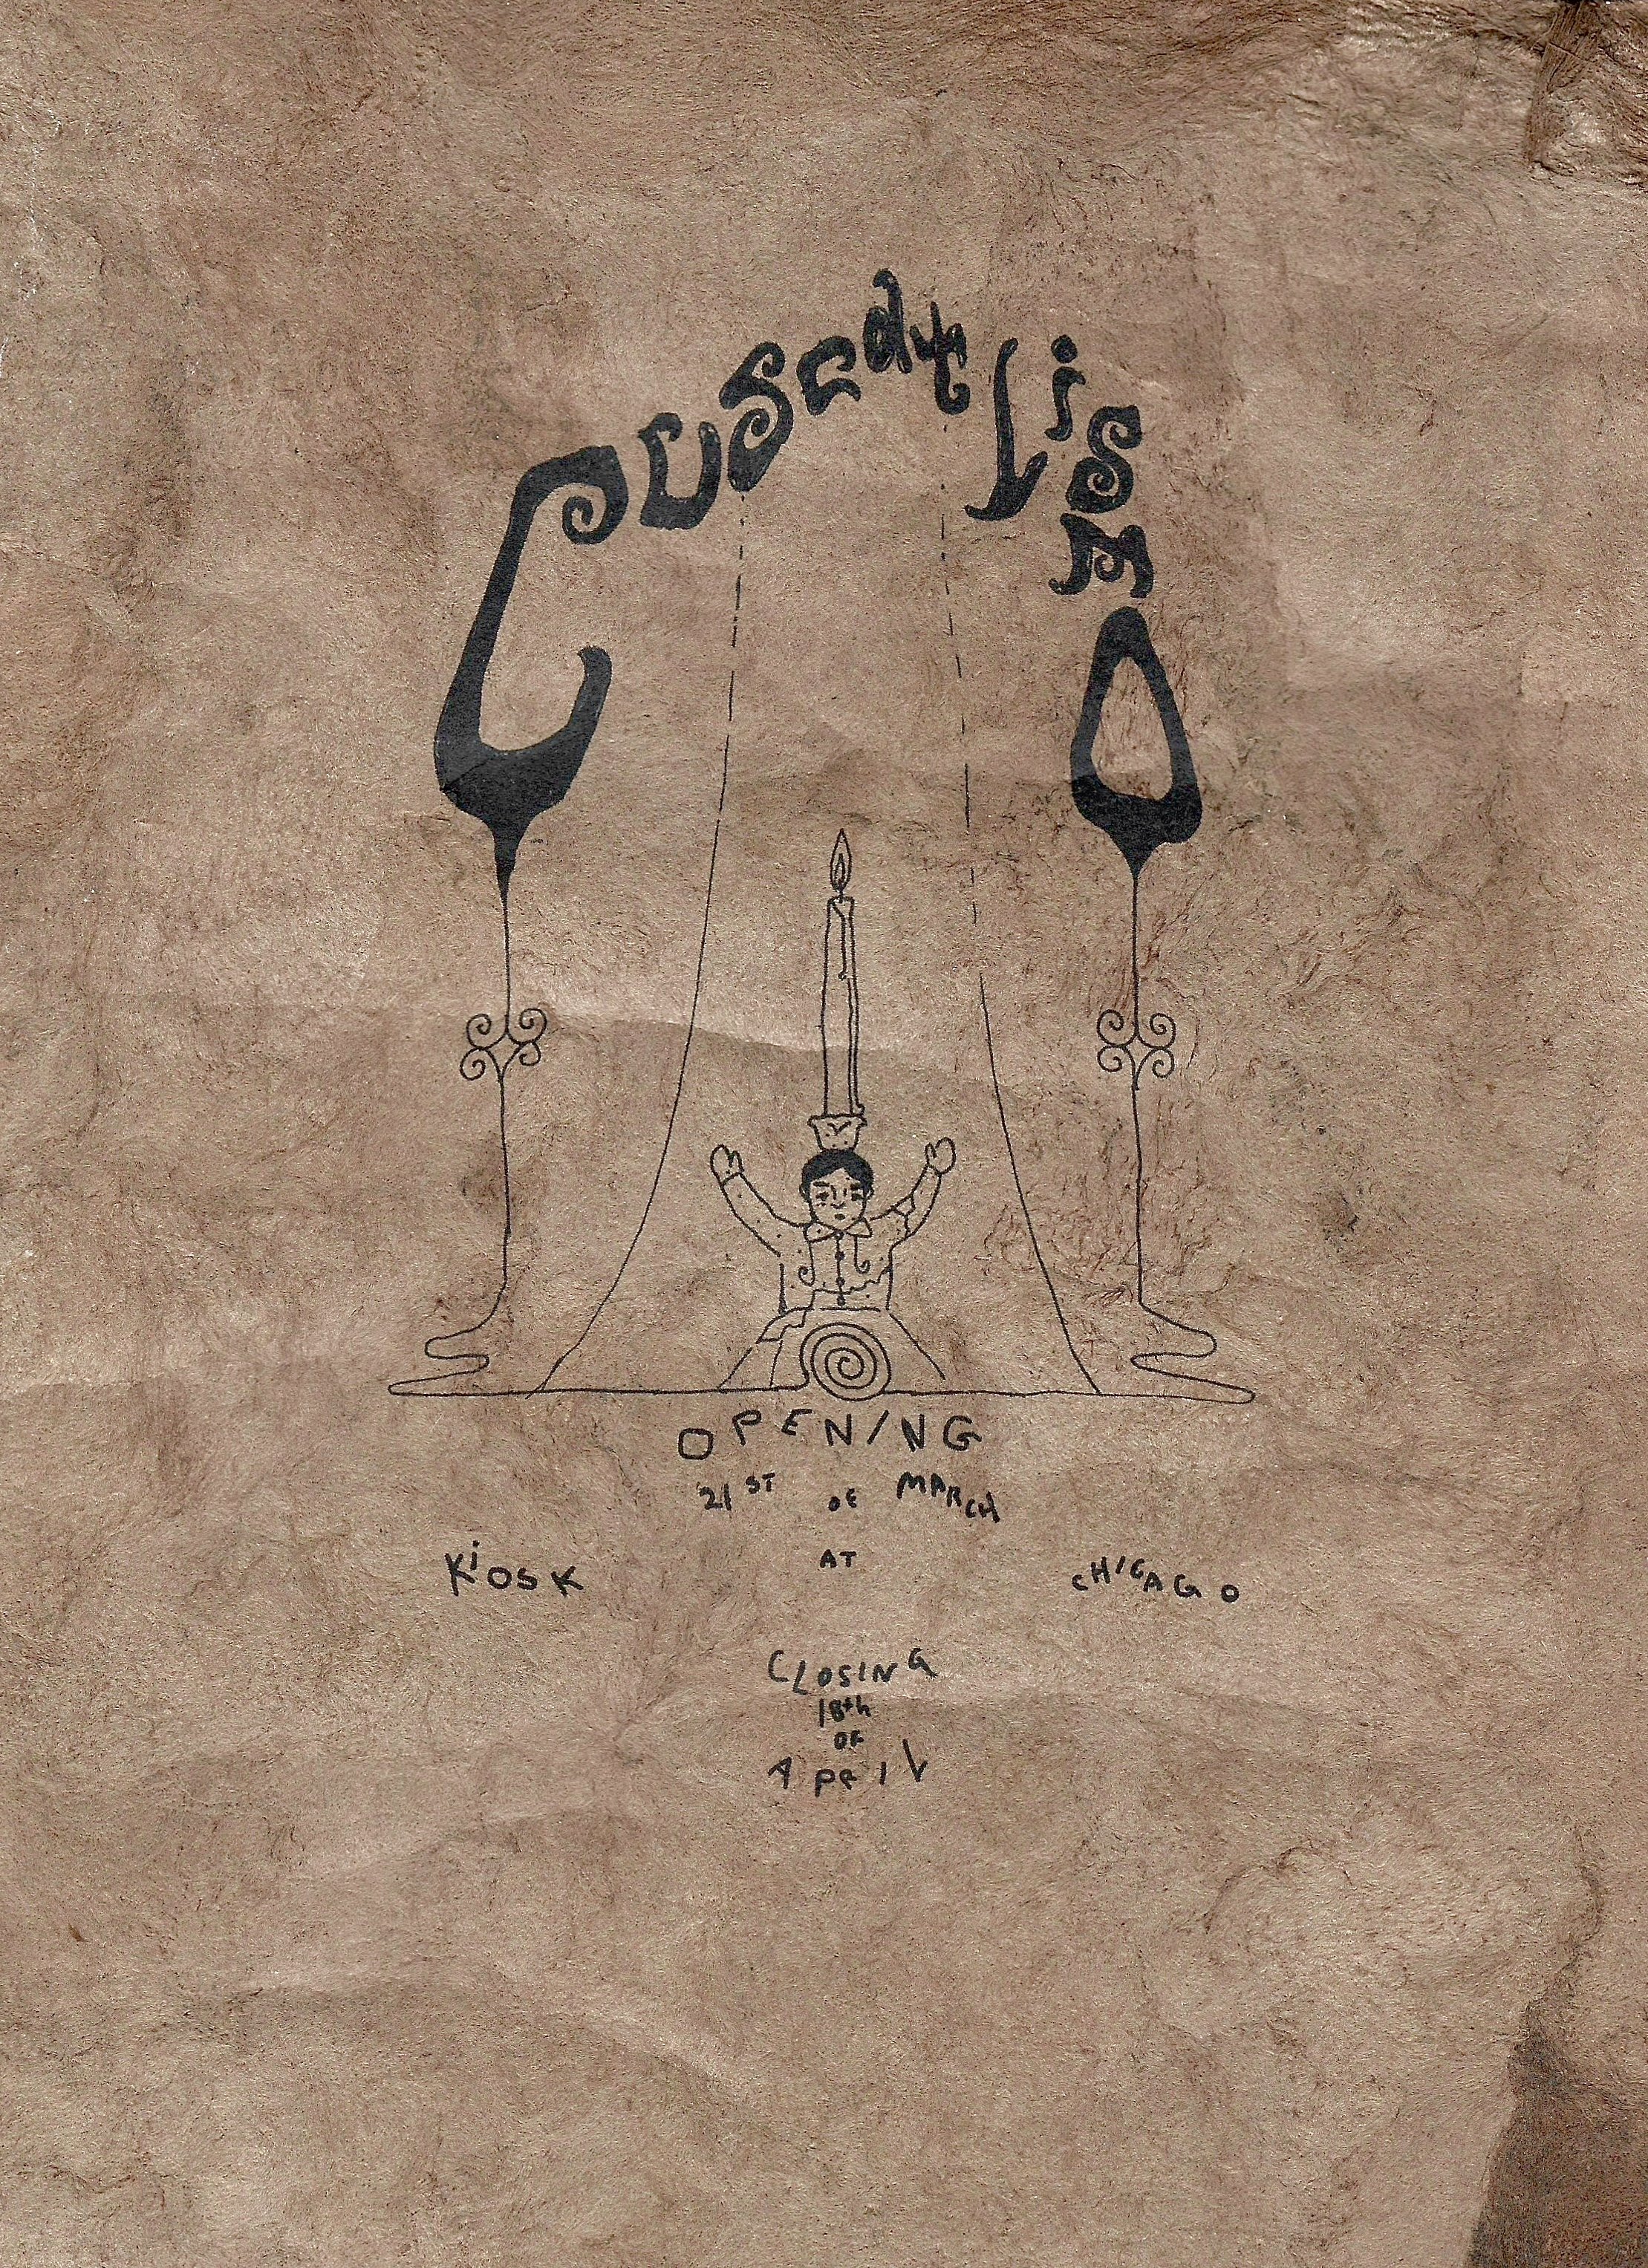 Cuscatlismo
OPENING
21ST OF MARCH
KiOSK AT CHICAGO
CLOSING
18th
OF
APRIL